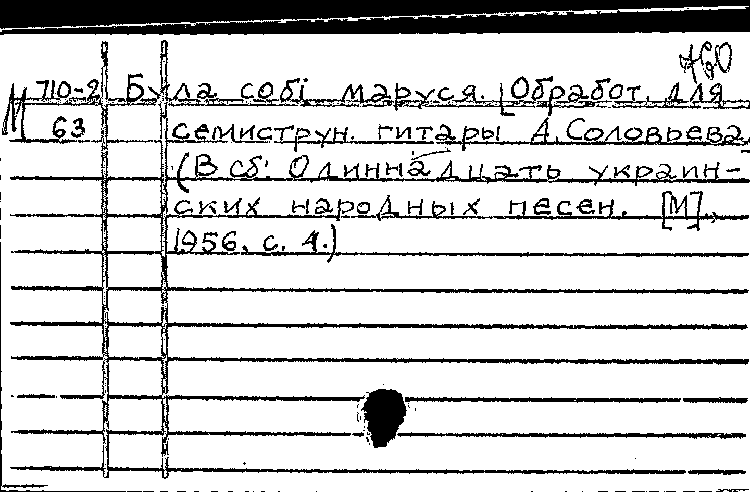 760
М 710-2 Була собі маруся. [Обработ. для
63 семиструн. гитары А. Соловьева]
(В сб: Одиннадцать украин-
ских народных песен. [М].,
1956. с. 4.)